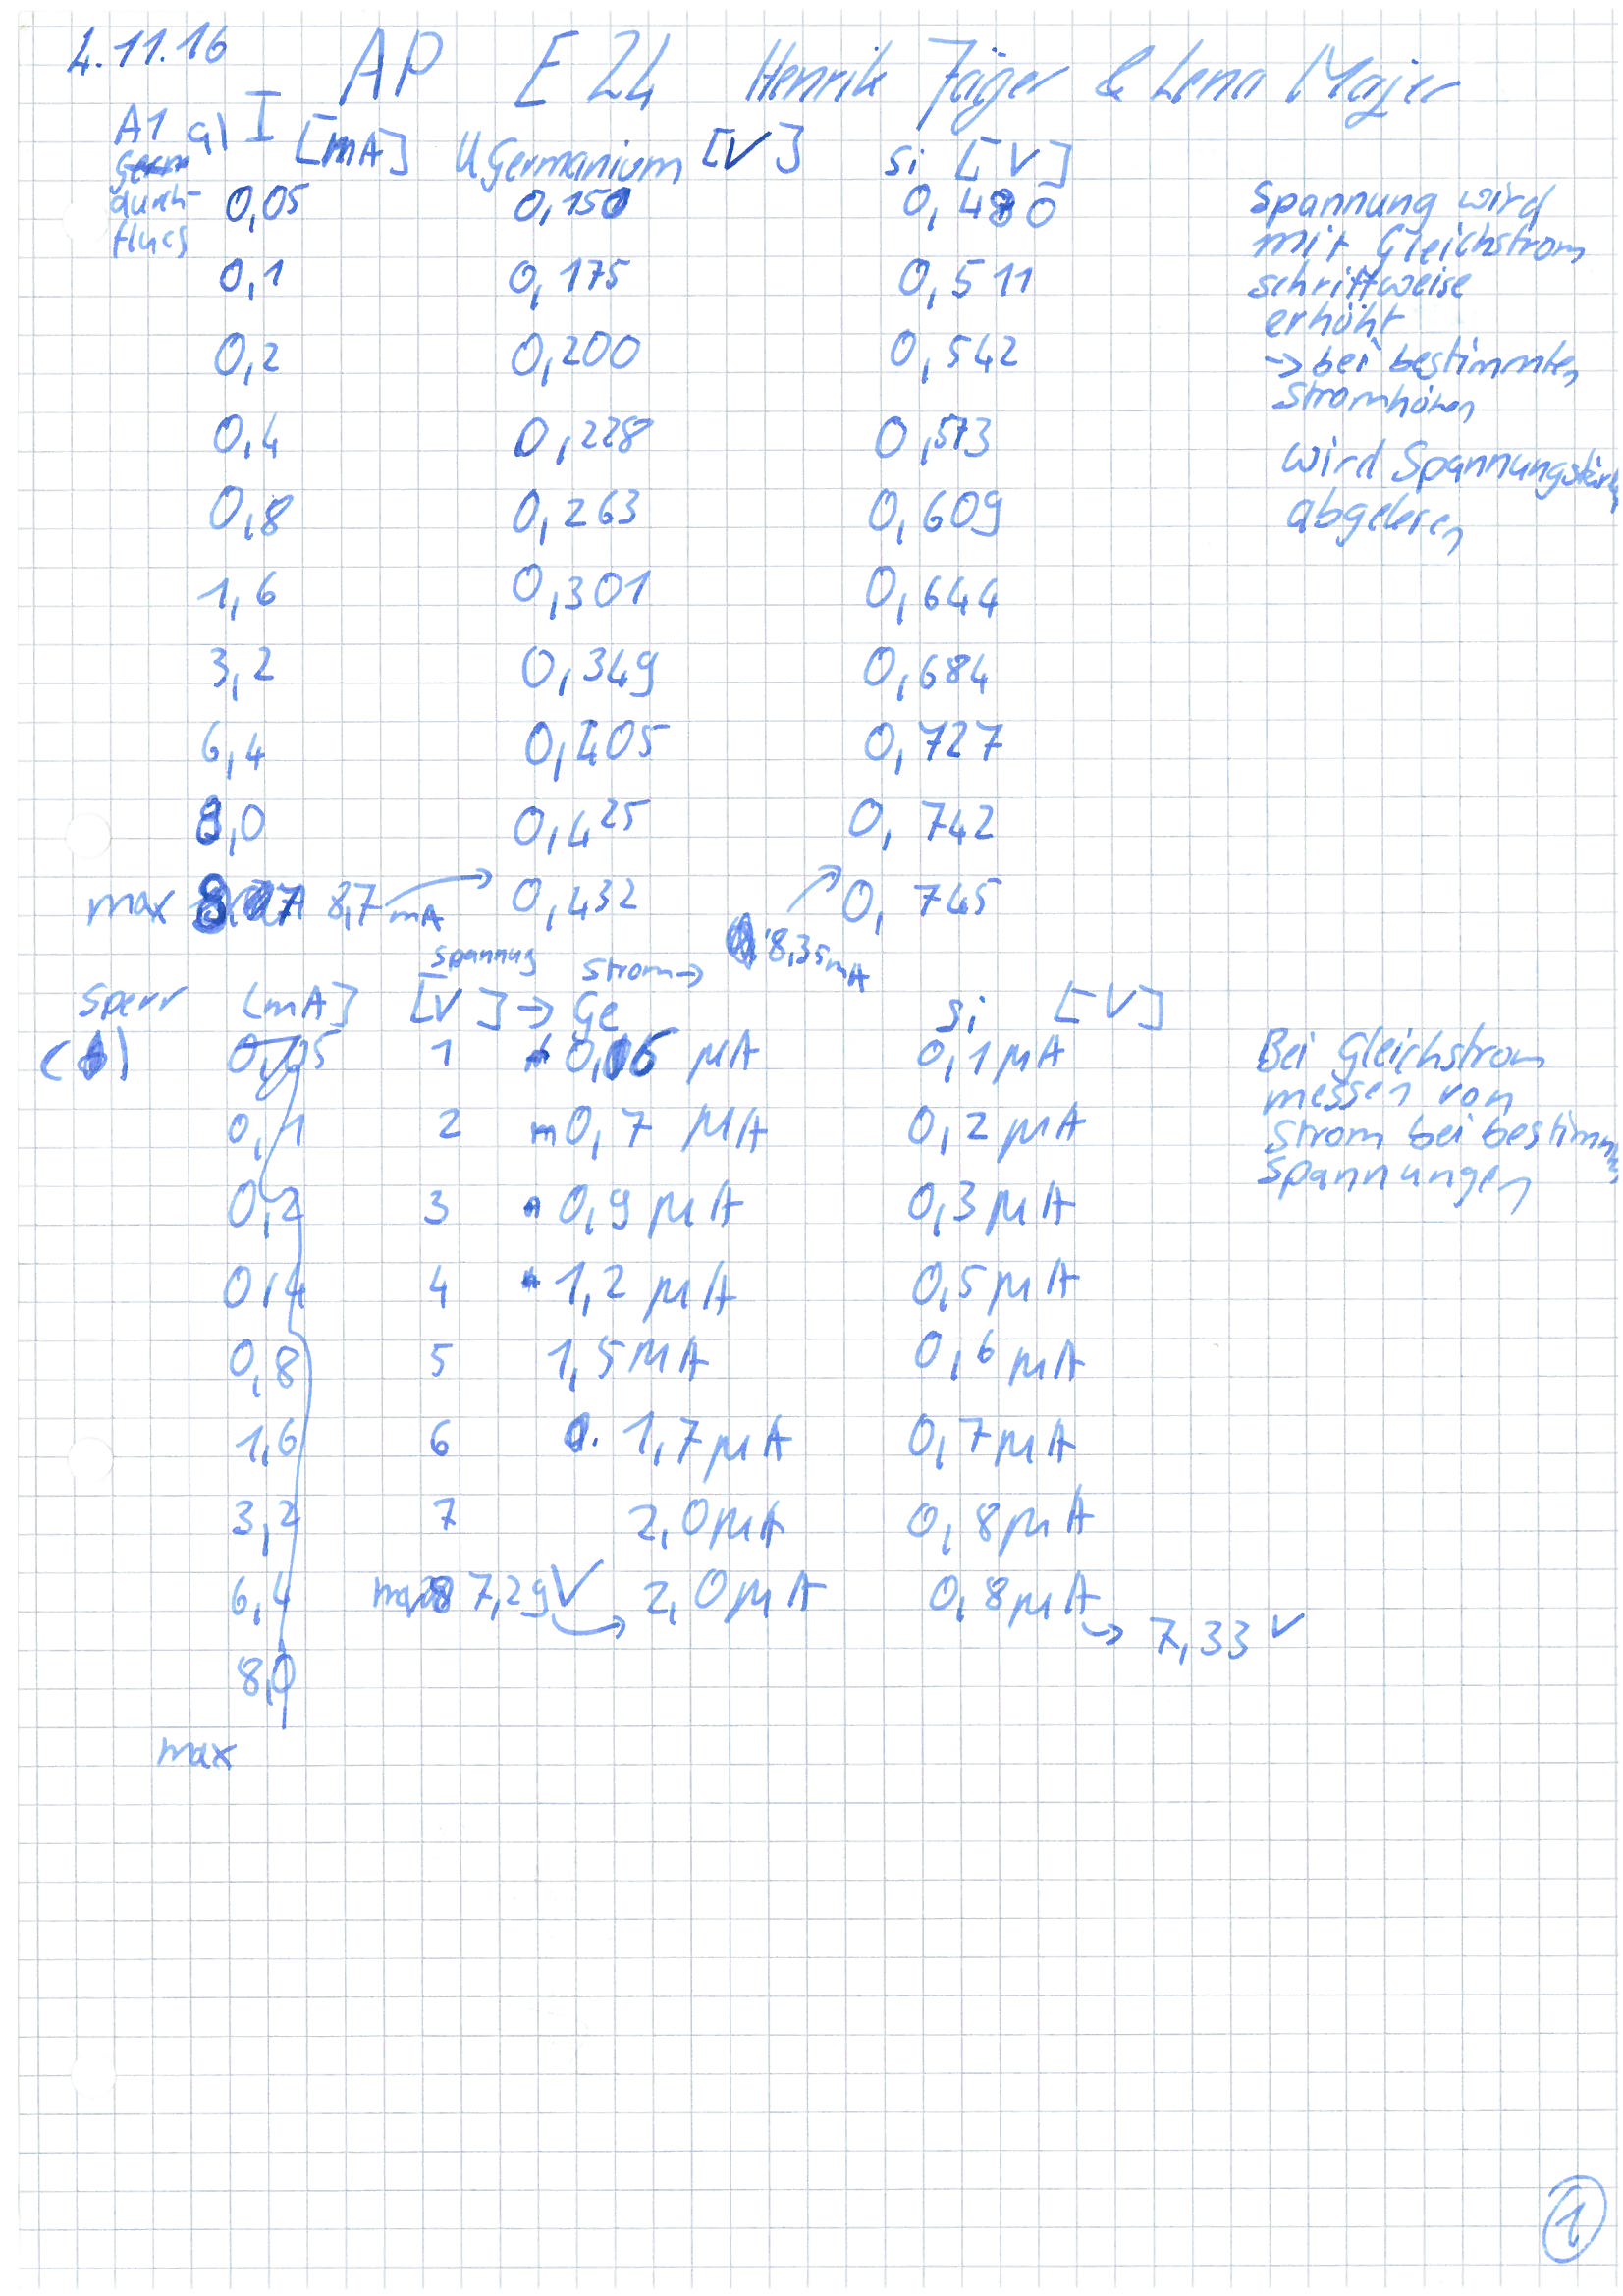 4.11.16 AP E24 Henrik Jäger & Lena Majer
A1 a) I [mA] U Germanium [V] Si [V]
durch-
fluss
0,05 0,150 0,480
0,1 0,175 0,511
0,2 0,200 0,542
0,4 0,228 0,573
0,8 0,263 0,609
1,6 0,301 0,644
3,2 0,349 0,684
6,4 0,405 0,727
8,0 0,425 0,742
max 8,7 mA 0,432 0,745
8,35mA
Spannung wird
mit Gleichstrom
schrittweise
erhöht
→ bei bestimmten
Stromhöhen
wird
abgelesen
Spannug Strom →
Sperr [mA] [V] → Ge Si [V]
0,05 1 μA 0,1 μA
0,1 2 0,7 μA 0,2 μA
0,2 3 0,9 μA 0,3 μA
0,4 4 1,2 μA 0,5 μA
0,8 5 1,5 μA 0,6 μA
1,6 6 1,7 μA 0,7 μA
3,2 7 2,0 μA 0,8 μA
6,4 max 7,29 V 2,0 μA 0,8 μA → 7,33 V
8,0
max
Bei Gleichstrom
messen von
Strom bei
Spannungen
1